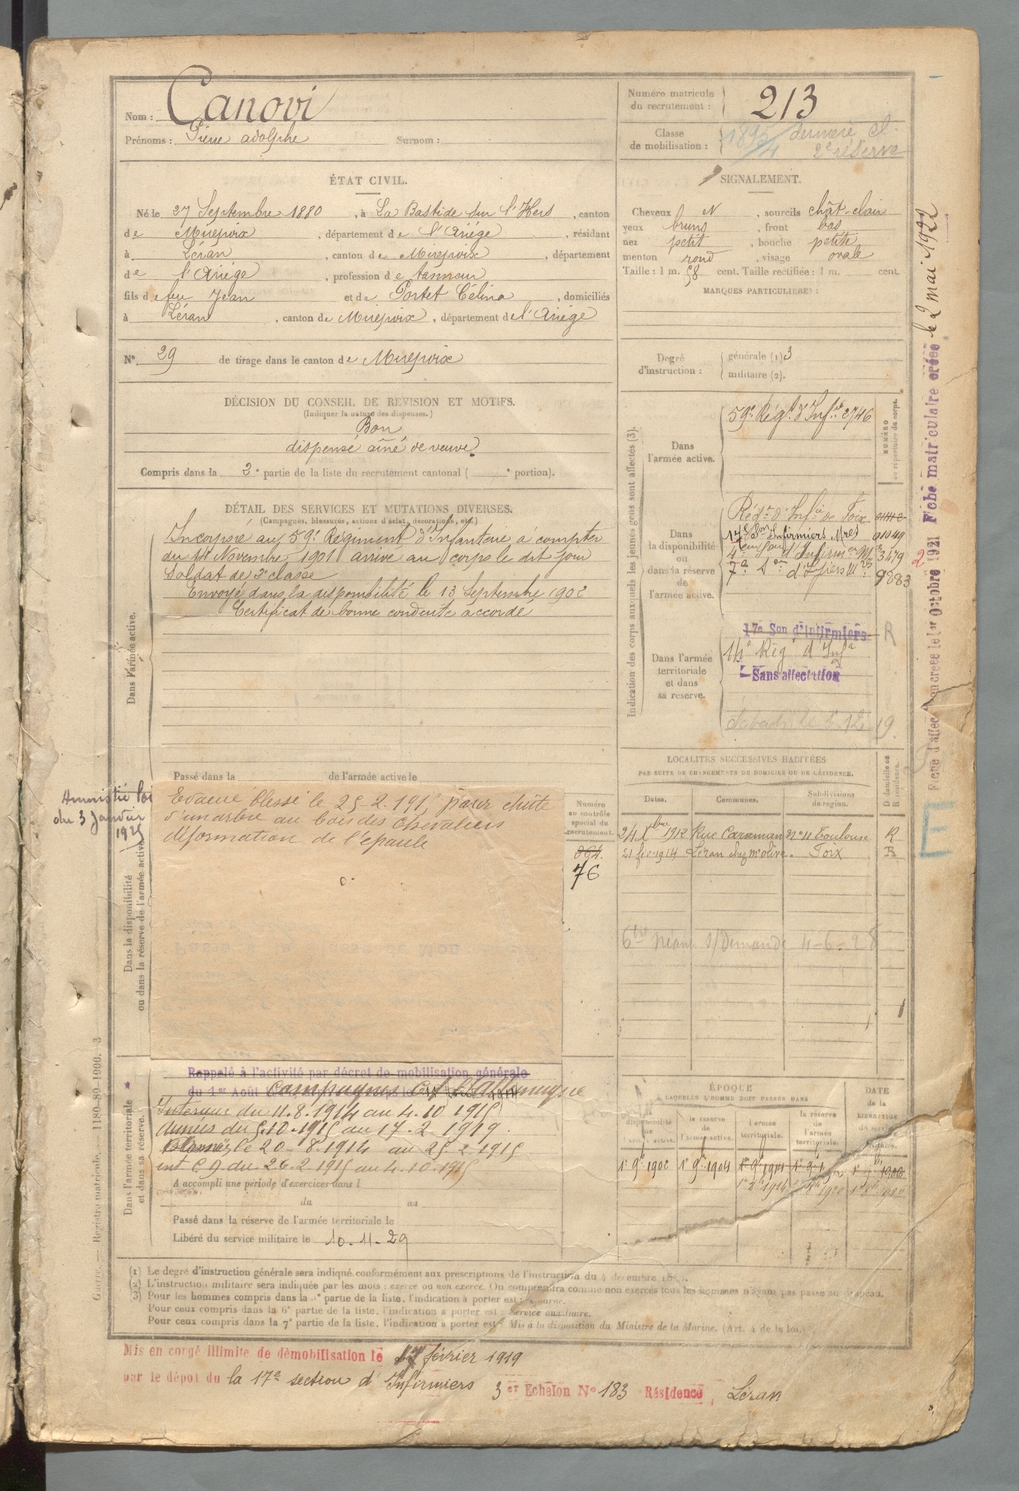 Nom : Canovi
Prénoms : Pierre adolphe Surnom :
ÉTAT CIVIL.
Né le 27 Septembre 1880, à La Bastide sur l'Hers, canton
de Mirepoix, département de l'Ariége, résidant
à Léran, canton de Mirepoix, département
de l'Ariége, profession de tanneur
fils de feu Jean et de Portet Célina, domiciliés
à Léran, canton de Mirepoix, département de l'Ariége
N° 29 de tirage dans le canton de Mirepoix
DÉCISION DU CONSEIL DE REVISION ET MOTIFS.
(Indiquer la nature des dispenses.)
Bon
dispensé aîné de veuve
Compris dans la 2e partie de la liste du recrutement cantonal ( e portion).
DÉTAIL DES SERVICES ET MUTATIONS DIVERSES.
(Campagnes, blessures, actions d'éclat, décorations, etc.)
Incorporé au 59e Régiment d'Infanterie à compter
du 14 Novembre 1901 arrivé au corps le dit jour
Soldat de 2e classe
Envoyé dans la disponibilité le 13 Septembre 1902
Certificat de bonne conduite accordé
Dans l'armée active.
Passé dans la de l'armée active le
Amnistié loi
du 3 Janvier
1925
Dans la disponibilité
ou dans la réserve de l'armée active.
Evacué blessé le 25.2.1915 pour chûte
d'un arbre au bois des Chevaliers
déformation de l'épaule
Numéro
au contrôle
spécial du
recrutement.
76
Rappelé à l'activité par décret de mobilisation générale
du 1er Août
Campagnes C/ l'Allemagne
Intérieur du 11.8.1914 au 4.10.1915
Armées du 5.10.1915 au 17.2.1919.
le 20-8.1914 au 25.2.1915
int C 9 du 26.2.1915 au 4.10.1915
A accompli une période d'exercices dans l
du au
Passé dans la réserve de l'armée territoriale le
Libéré du service militaire le 10-11-29
Dans l'armée territoriale
et dans sa réserve.
Numéro matricule
du recrutement : 213
Classe
de mobilisation : dernière cl
2e réserve
SIGNALEMENT.
Cheveux N, sourcils chât-clair
yeux bruns, front bas
nez petit, bouche petite
menton rond, visage ovale
Taille : 1 m. 58 cent. Taille rectifiée : 1 m. cent.
MARQUES PARTICULIÈRES :
Degré
d'instruction :
générale (1) 3
militaire (2).
Indication des corps auxquels les jeunes gens sont affectés (3).
NUMÉRO
Dans
l'armée active.
59e Régt d'Infie 2746
Dans
la disponibilité
ou
dans la réserve
de
l'armée active.
Régt d'Infie de Foix
17e Son Infirmiers Mres
Dans l'armée
territoriale
et dans
sa réserve.
17e Son d'infirmiers R
14e Régt d'Infie
Sans affectation
LOCALITÉS SUCCESSIVES HABITÉES
PAR SUITE DE CHANGEMENTS DE DOMICILE OU DE RÉSIDENCE.
Dates. Communes. Subdivisions
de région.
1912 Rue Caraman Toulouse R
21 fév 1914 Léran Foix R
Néant s/Demande 4-6-28
E
ÉPOQUE
À LAQUELLE L'HOMME DOIT PASSER DANS
la réserve
de
l'armée active.
l'armée
territoriale.
la réserve
de
l'armée
territoriale.
DATE
DE LA
LIBÉRATION
1er 9bre 1902 1er 9bre 1904
(1) Le degré d'instruction générale sera indiqué conformément aux prescriptions de l'instruction du 4 décembre
(2) L'instruction militaire sera indiquée par les mots : exercé ou non exercé. On comprendra comme non exercés tous les hommes n'ayant pas passé au drapeau.
(3) Pour les hommes compris dans la partie de la liste, l'indication à porter est :
Pour ceux compris dans la 6e partie de la liste, l'indication à porter est : Service auxiliaire.
Pour ceux compris dans la 7e partie de la liste, l'indication à porter est : Mis à la disposition du Ministre de la Marine. (Art. 4 de la loi.)
Mis en congé illimité de démobilisation le 17 février 1919
par le dépôt du la 17e section d'Infirmiers 3er Echelon N° 183 Résidence Léran
Fiche matriculaire créée le 2 mai 1922